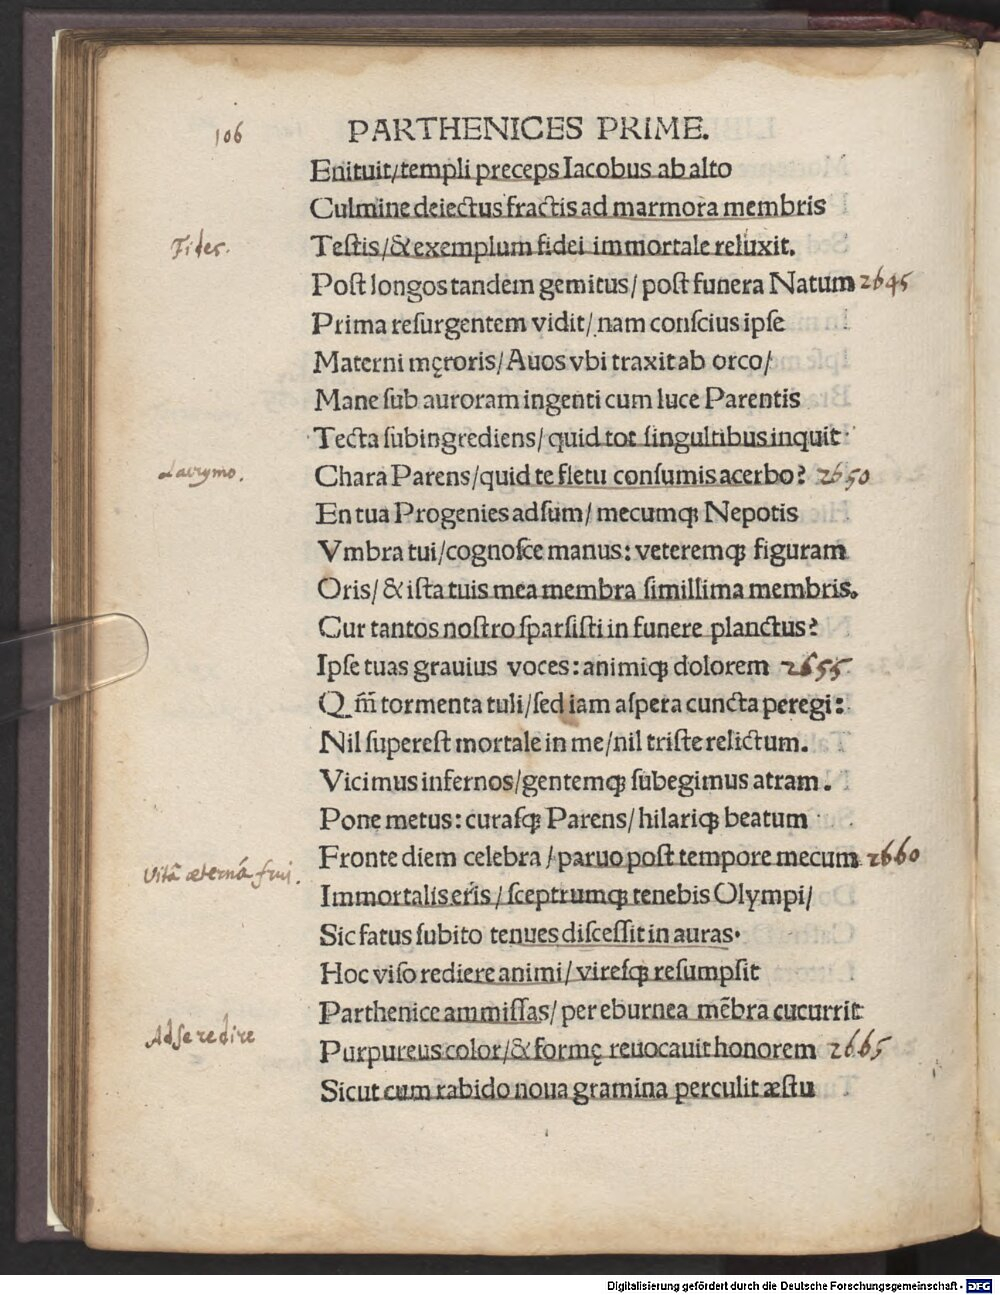 106
PARTHENICES PRIME.
Enituit/templi preceps Iacobus ab alto
Culmine deiectus fractis ad marmora membris
Fides.
Testis/& exemplum fidei immortale reluxit.
Post longos tandem gemitus/ post funera Natum 2645
Prima resurgentem vidit/ nam conscius ipse
Materni męroris/ Auos vbi traxit ab orco/
Mane sub auroram ingenti cum luce Parentis
Tecta subingrediens/ quid tot singultibus inquit
Lacrymo.
Chara Parens/quid te fletu consumis acerbo? 2650
En tua Progenies adsum/ mecumqꝫ Nepotis
Vmbra tui/cognosce manus: veteremqꝫ figuram
Oris/ & ista tuis mea membra simillima membris.
Cur tantos nostro sparsisti in funere planctus?
Ipse tuas grauius voces: animiqꝫ dolorem 2655
Q. m̃ tormenta tuli/sed iam aspera cuncta peregi:
Nil superest mortale in me/nil triste relictum.
Vicimus infernos/gentemqꝫ subegimus atram.
Pone metus: curasqꝫ Parens/ hilariqꝫ beatum
Fronte diem celebra / paruo post tempore mecum 2660
Vitã æternã frui.
Immortalis eris / sceptrumqꝫ tenebis Olympi/
Sic fatus subito tenues discessit in auras.
Hoc viso rediere animi/ viresqꝫ resumpsit
Parthenice ammissas/ per eburnea mẽbra cucurrit
Ad se redire
Purpureus color/& formę reuocauit honorem 2665
Sicut cum rabido noua gramina perculit æstu
Digitalisierung gefördert durch die Deutsche Forschungsgemeinschaft - DFG